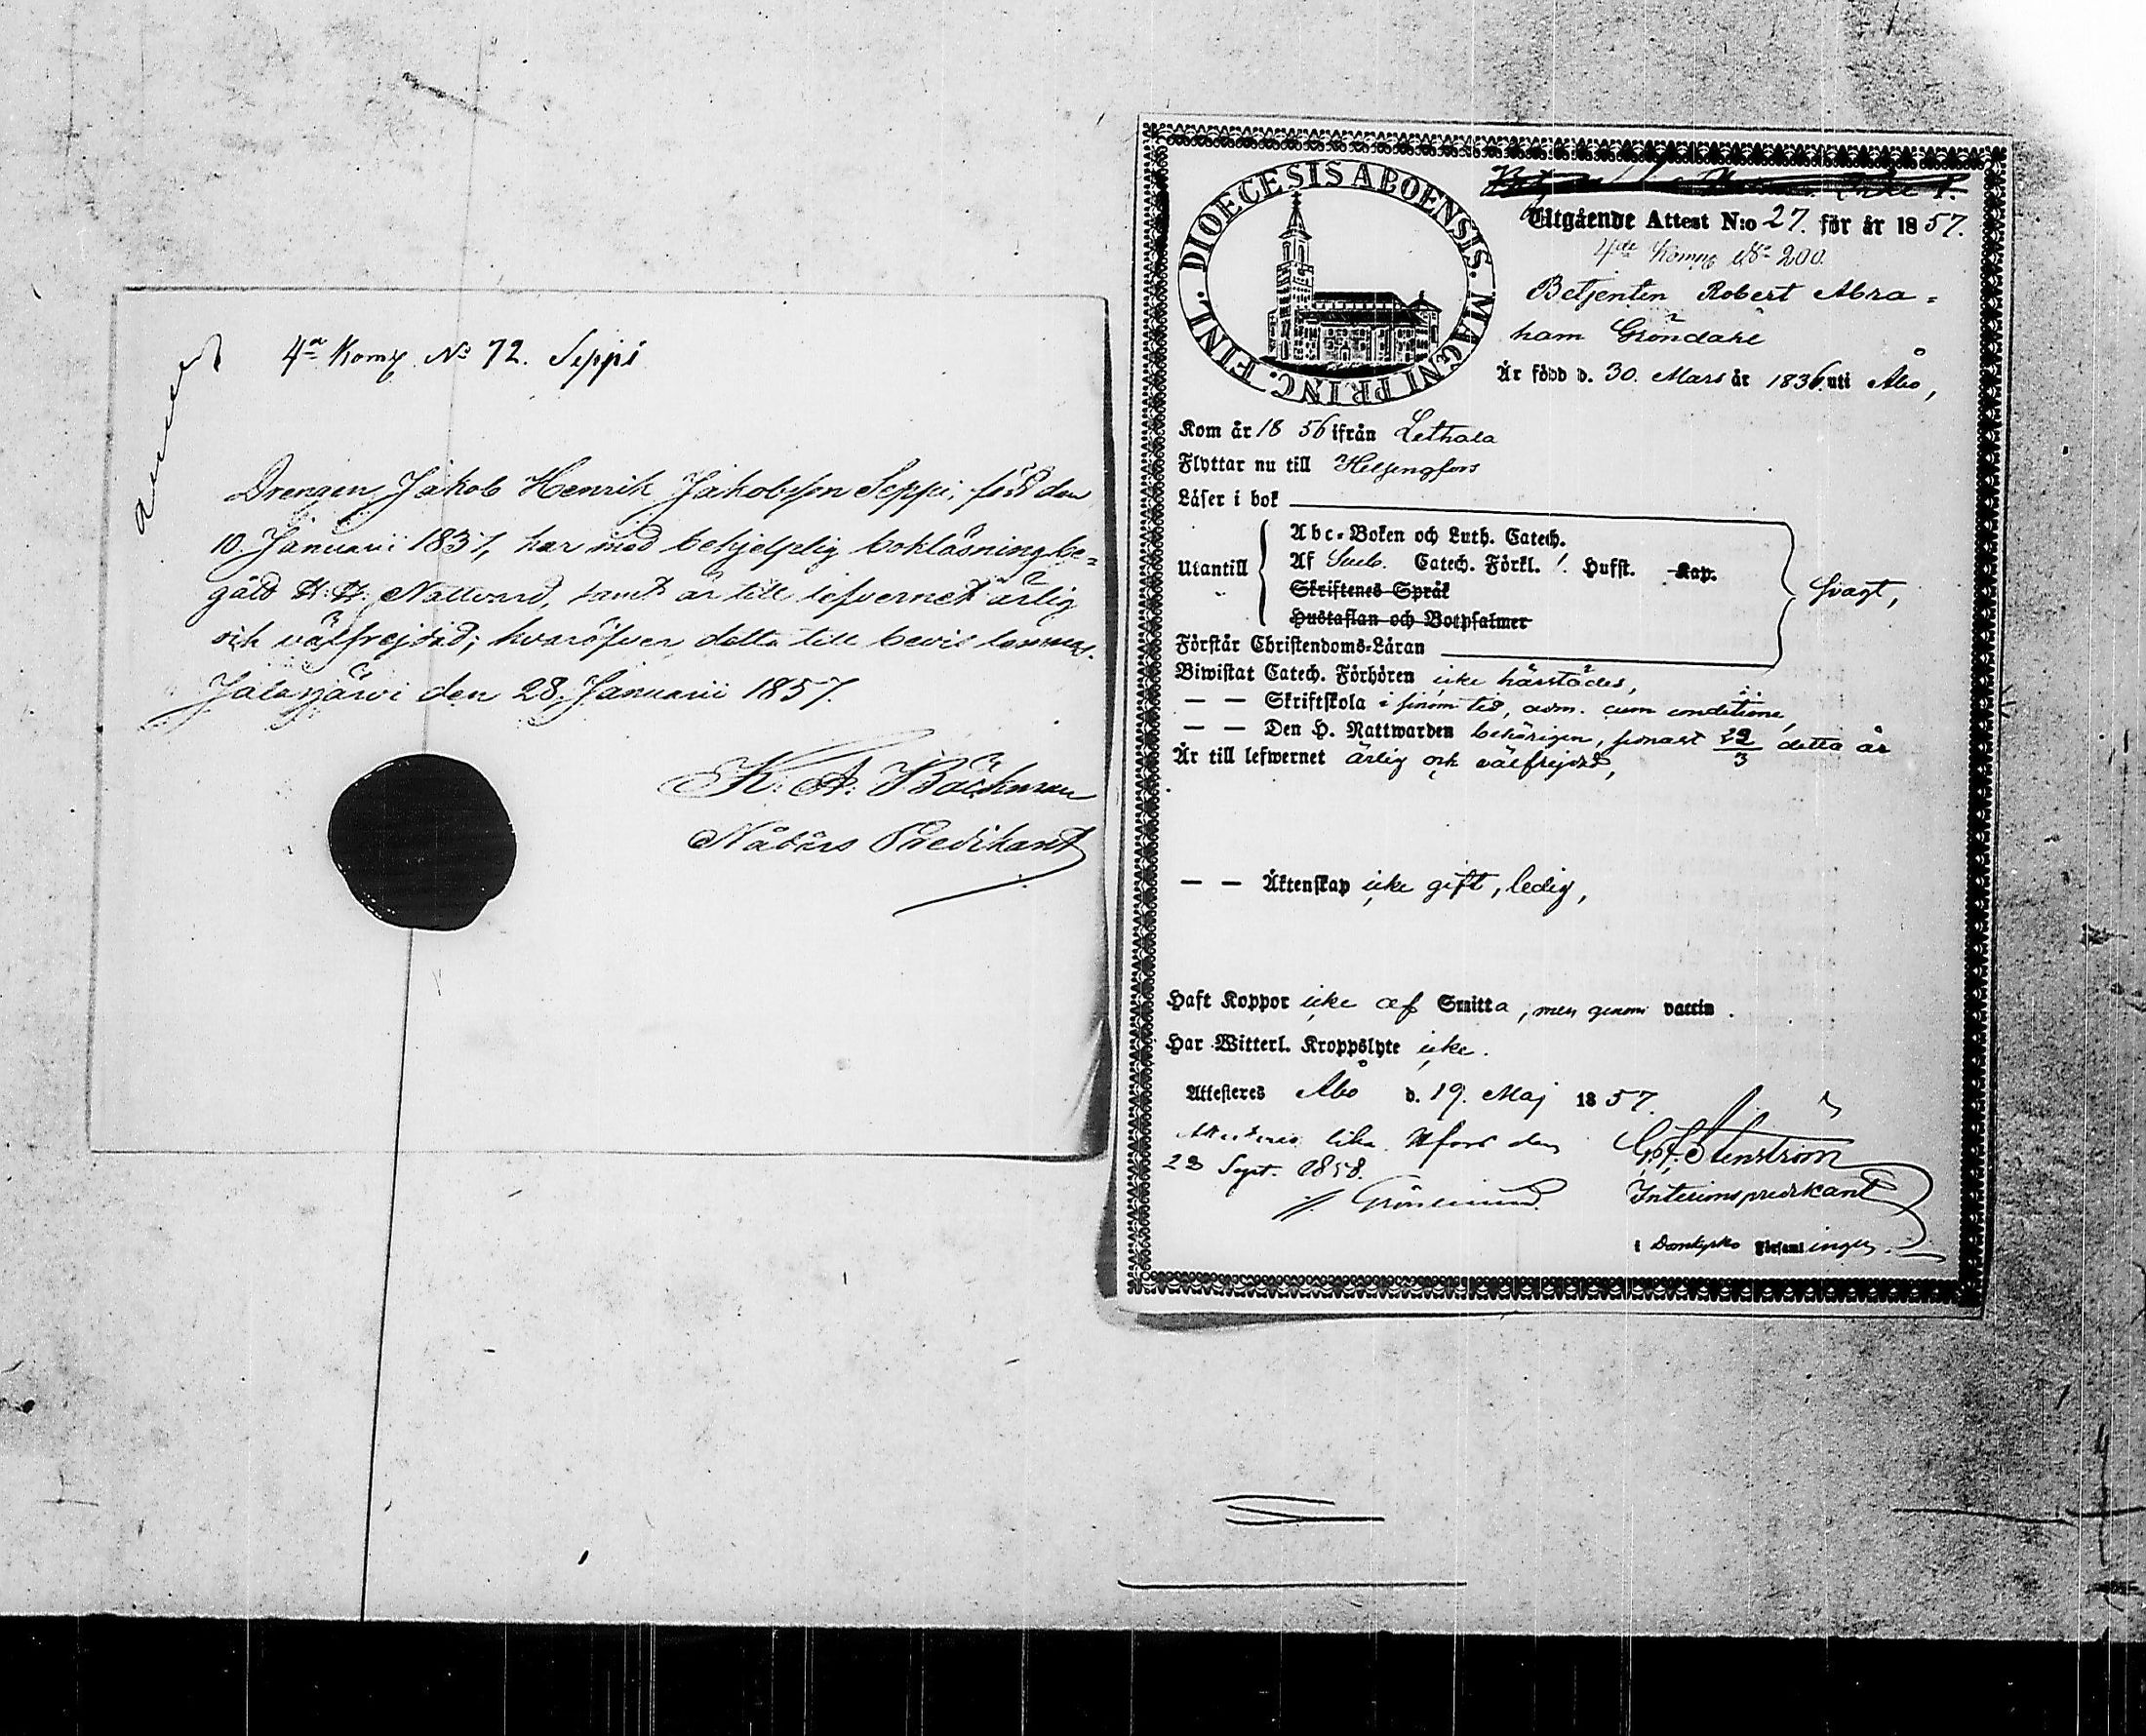 4de Komp. No 72. Seppi
Drengen Jakob Henrik Jakobsson Seppi, född den
10 Januarii 1837, har med behjelplig bokläsning be-
gått H. H. Nattvard, samt är till lefvernet ärlig
och välfrejdad; hvaröfver detta till bevis lemnas.
Jalasjärvi den 28 Januarii 1857.
K. A. Bäckman
Nådårs Predikant
DIOECESIS ABOENSIS. MAGNI PRINC. FINL.
Utgående Attest N:o 27. för år 1857.
4de Komp No 200.
Betjenten Robert Abra-
ham Gröndahl
Är född d. 30. Mars år 1836 uti Åbo,
Kom år 1856 ifrån Lethala
Flyttar nu till Helsingfors
Läser i bok
Utantill
Abc-Boken och Luth. Catech.
Af Catech. Förkl. 1. Hufst. Kap.
Skriftenes Språk
Hustaflan och Botpsalmer
svagt,
Förstår Christendoms-Läran
Biwistat Catech. Förhören icke härstädes,
— — Skriftskola i sinom tid, adm. cum conditione,
— — Den H. Nattwarden behörigen, senast 29/3 detta år
Är till lefwernet ärlig och välfrejdad,
— — Äktenskap icke gift, ledig,
Haft Koppor icke af Smitta, men genom vaccin.
Har Witterl. Kroppslyte icke.
Attesteres Åbo d. 19. Maj 1857.
Hfors den
23 Sept. 1858.
Grönlund
G. F. Stenström
Interimspredikant
i Församlingen.